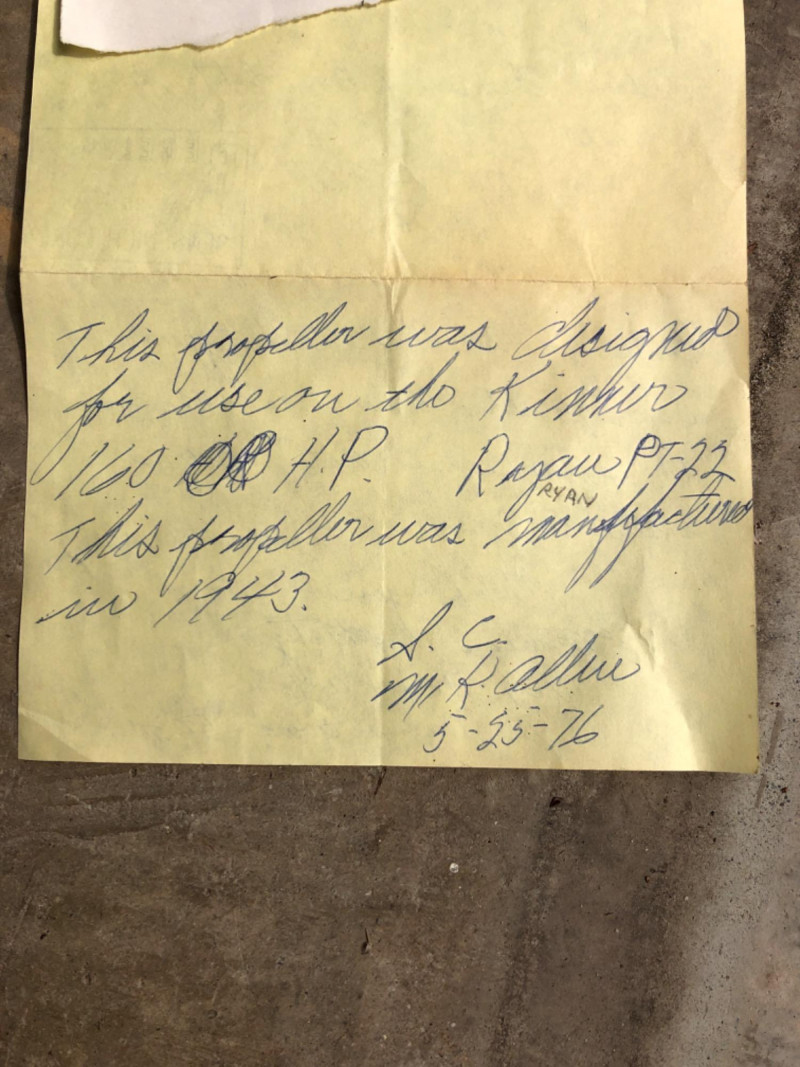 This propeller was designed
for use on the Kinner
160 H.P. Ryan PT-22
RYAN
This propeller was manufactured
in 1943.
S. C.
M. R. Allen
5-25-76